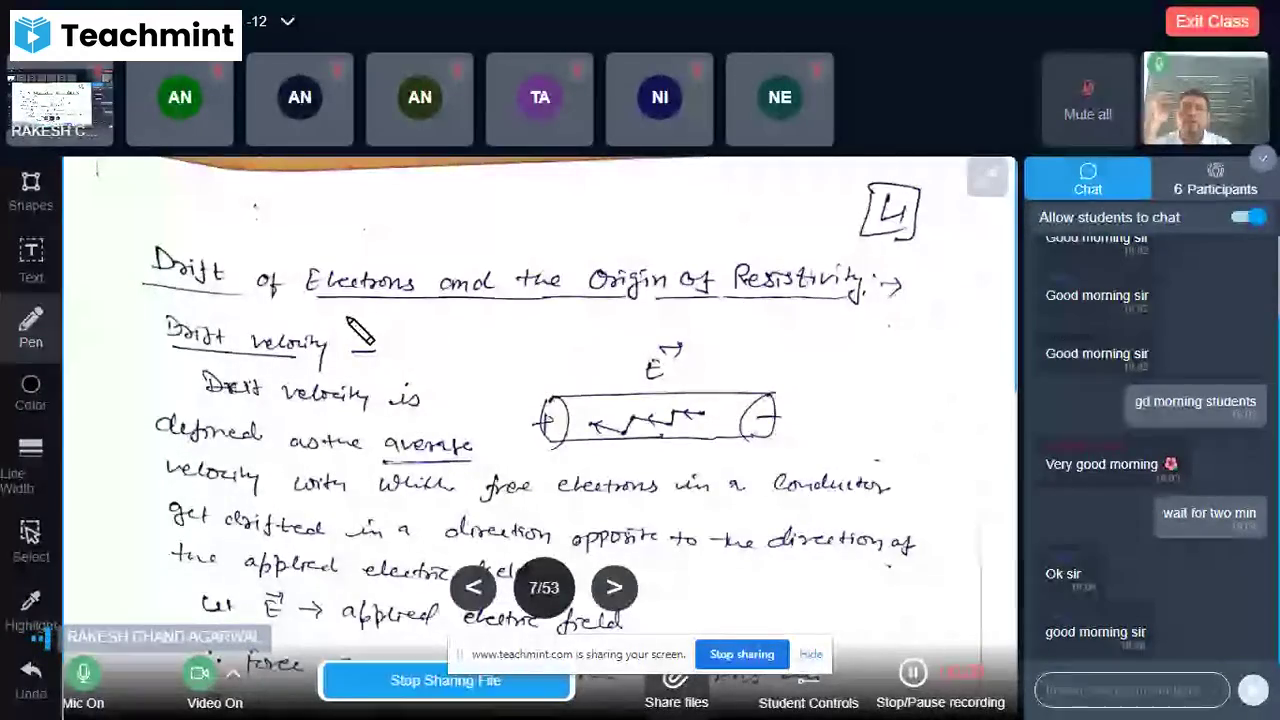 Teachmint
-12
Exit Class
AN
AN
AN
TA
NI
NE
RAKESH C...
Mute all
Shapes
Text
Pen
Color
Line Width
Select
Highlight
Undo
4
Drift of Electrons and the Origin of Resistivity :→
Drift velocity
E
Drift velocity is
defined as the average
velocity with which free electrons in a conductor
get drifted in a direction opposite to the direction of
the applied electric
Let E → applied electric field
force
RAKESH CHAND AGARWAL
< 7/53 >
www.teachmint.com is sharing your screen.
Stop sharing
Hide
Mic On
Video On
Stop Sharing File
Share files
Student Controls
Stop/Pause recording
Chat
6 Participants
Allow students to chat
Good morning sir
Good morning sir
Good morning sir
gd morning students
Very good morning 🌺
wait for two min
Ok sir
good morning sir